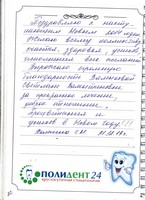 Поздравляю с насту-
пающим Новым 2019 годом
Желаю всему коллективу
счастья, здоровья, успехов
исполнения всех желаний
Выражаю огромную
благодарность
Светлане
за прекрасное лечение,
доброе отношение.
Процветания и
успехов в Новом Году!!!
ПОЛИДЕНТ 24
круглосуточная стоматология